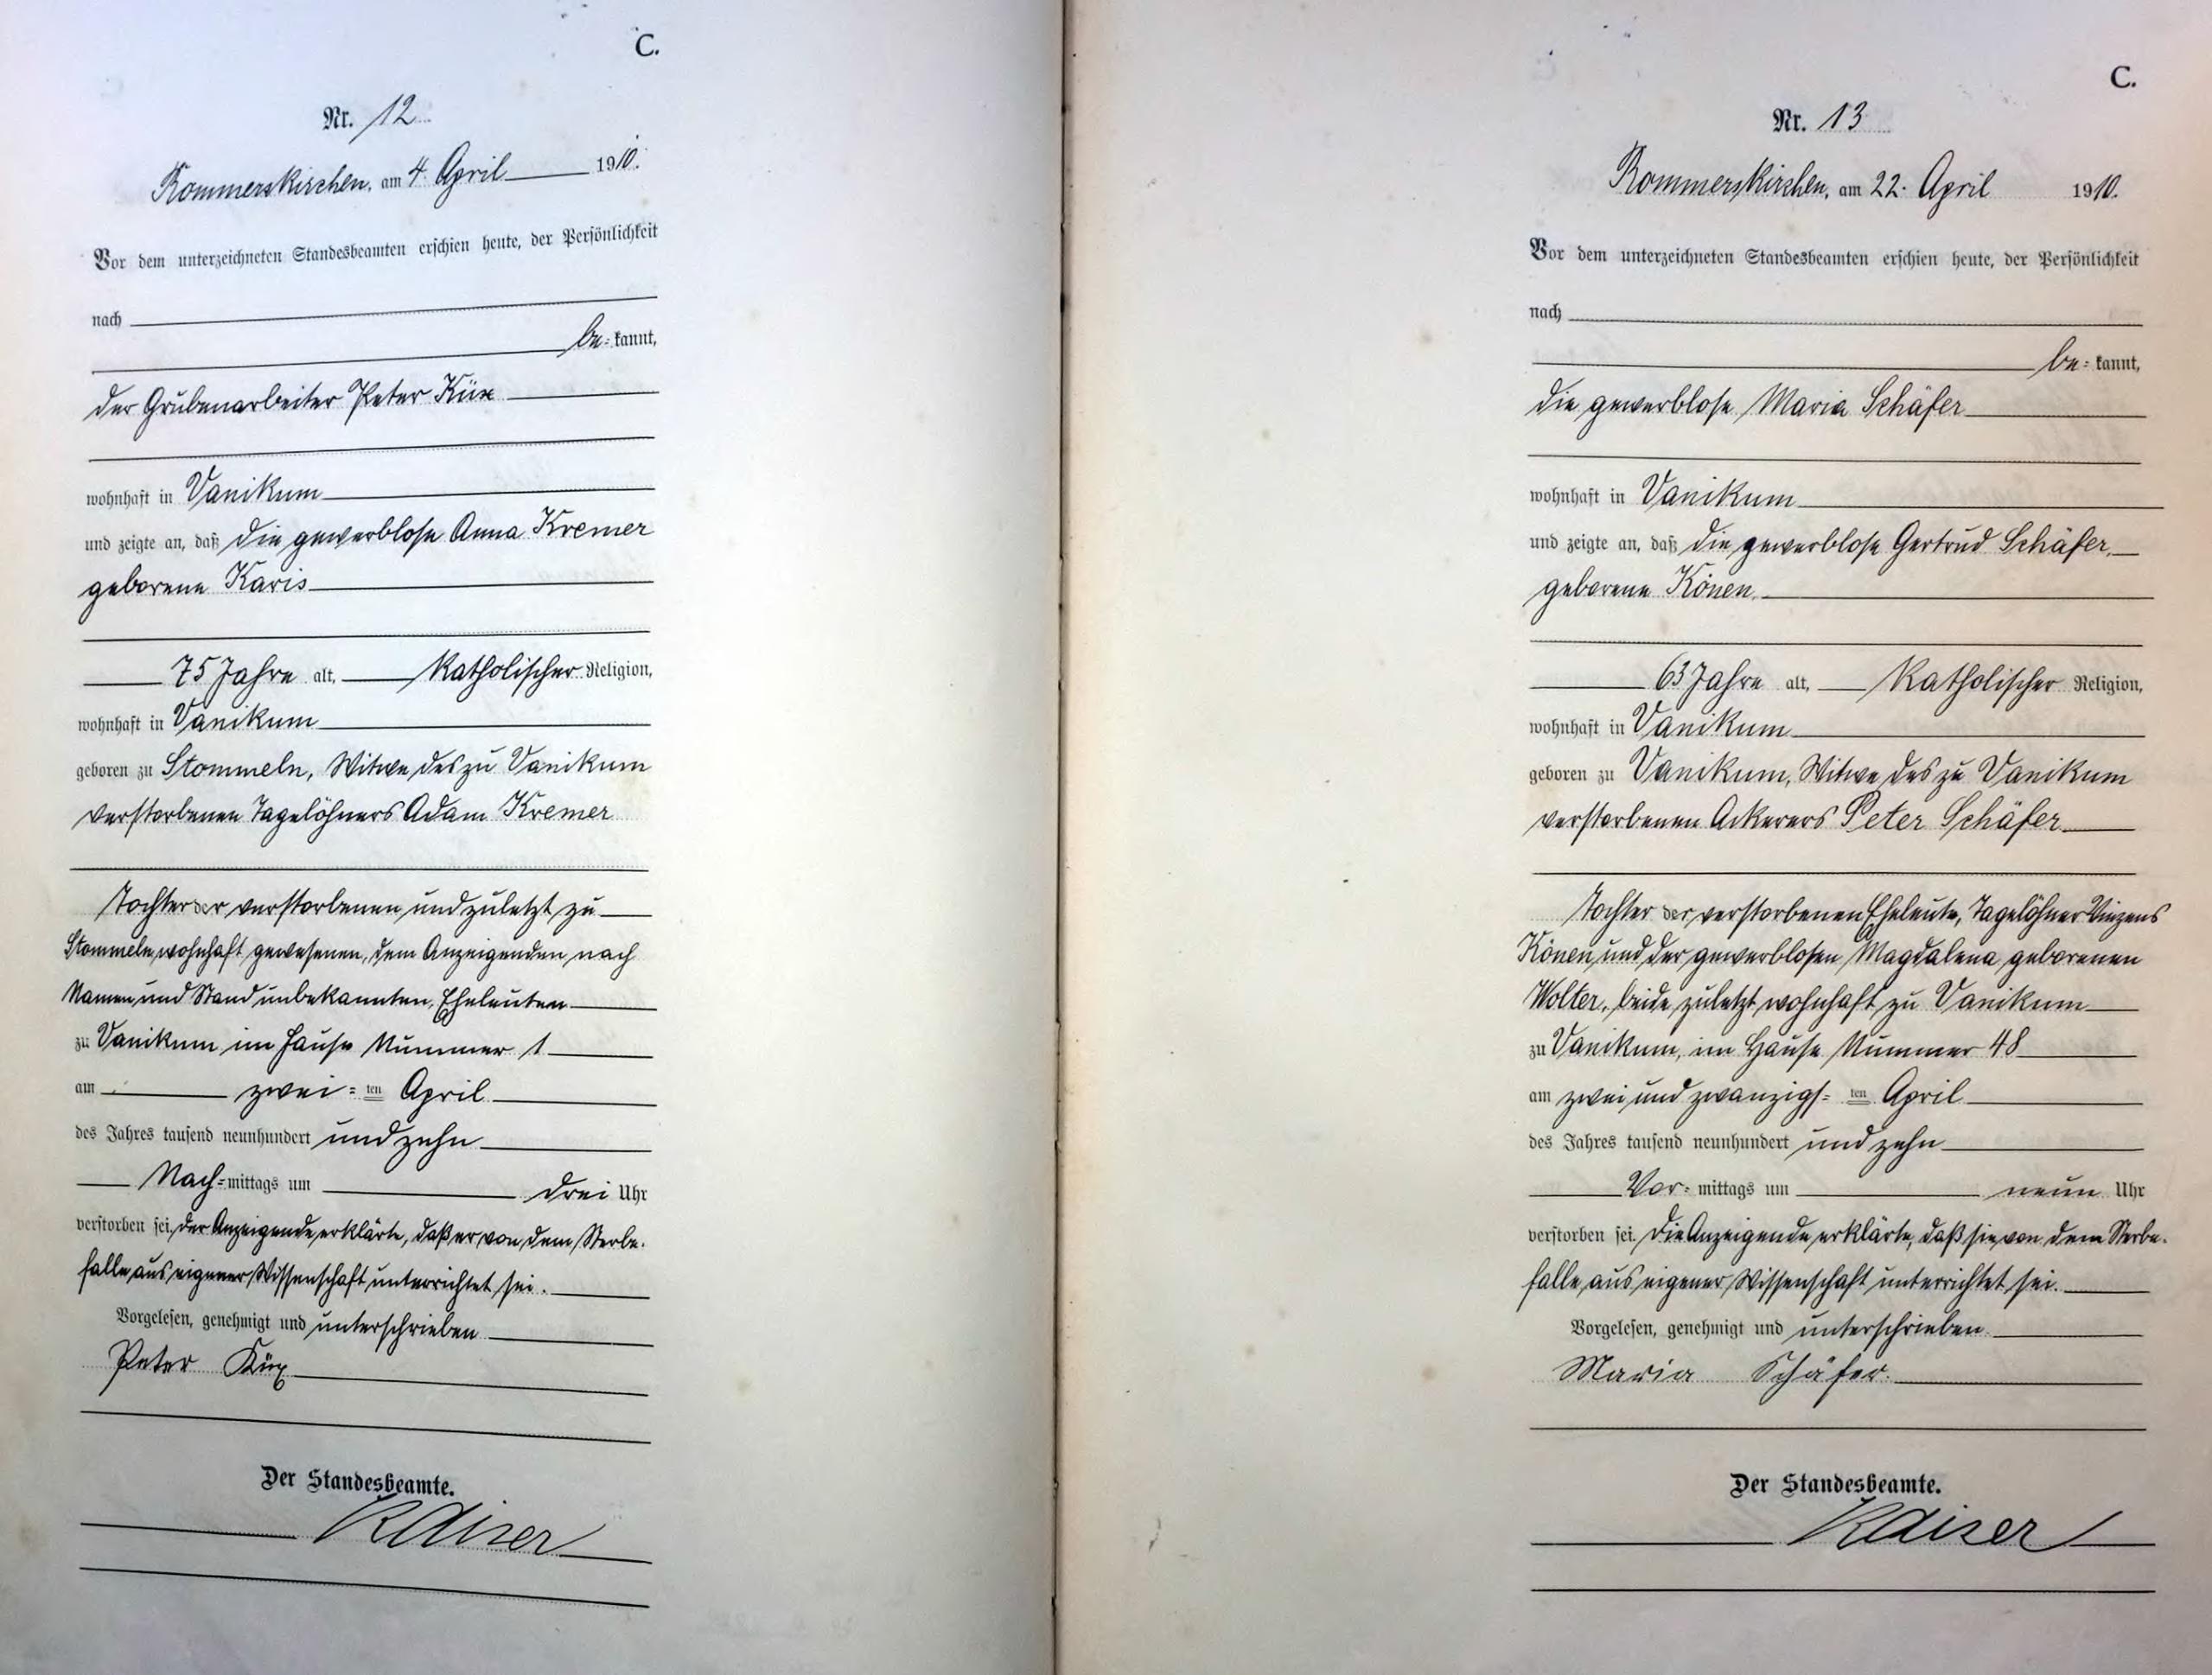 C.
Nr. 12
Rommerskirchen, am 4. April 1910.
Vor dem unterzeichneten Standesbeamten erschien heute, der Persönlichkeit
nach
be=kannt,
der Grubenarbeiter Peter Küx
wohnhaft in Vanikum
und zeigte an, daß die gewerblose Anna Kremer
geborene Karis
75 Jahre alt, katholischer Religion,
wohnhaft in Vanikum
geboren zu Stommeln, Witwe des zu Vanikum
verstorbenen Tagelöhners Adam Kremer
Tochter der verstorbenen und zuletzt zu
Stommeln wohnhaft gewesenen, dem Anzeigenden nach
Namen und Stand unbekannten, Eheleuten
zu Vanikum im Hause Nummer 1
am zwei=ten April
des Jahres tausend neunhundert und zehn
Nach=mittags um drei Uhr
verstorben sei. Der Anzeigende erklärte, daß er von dem Sterbe-
falle aus eigener Wissenschaft unterrichtet sei.
Vorgelesen, genehmigt und unterschrieben
Peter Küx
Der Standesbeamte.
Kaiser
C.
Nr. 13
Rommerskirchen, am 22. April 1910.
Vor dem unterzeichneten Standesbeamten erschien heute, der Persönlichkeit
nach
be=kannt,
die gewerblose Maria Schäfer
wohnhaft in Vanikum
und zeigte an, daß die gewerblose Gertrud Schäfer,
geborene Könen,
63 Jahre alt, katholischer Religion,
wohnhaft in Vanikum
geboren zu Vanikum, Witwe des zu Vanikum
verstorbenen Ackerers Peter Schäfer
Tochter der verstorbenen Eheleute, Tagelöhner Vinzens
Könen und der gewerblosen Magdalena geborenen
Wolter, beide zuletzt wohnhaft zu Vanikum
zu Vanikum, im Hause Nummer 48
am zwei und zwanzigs=ten April
des Jahres tausend neunhundert und zehn
Vor=mittags um neun Uhr
verstorben sei. Die Anzeigende erklärte, daß sie von dem Sterbe-
falle aus eigener Wissenschaft unterrichtet sei.
Vorgelesen, genehmigt und unterschrieben
Maria Schäfer.
Der Standesbeamte.
Kaiser